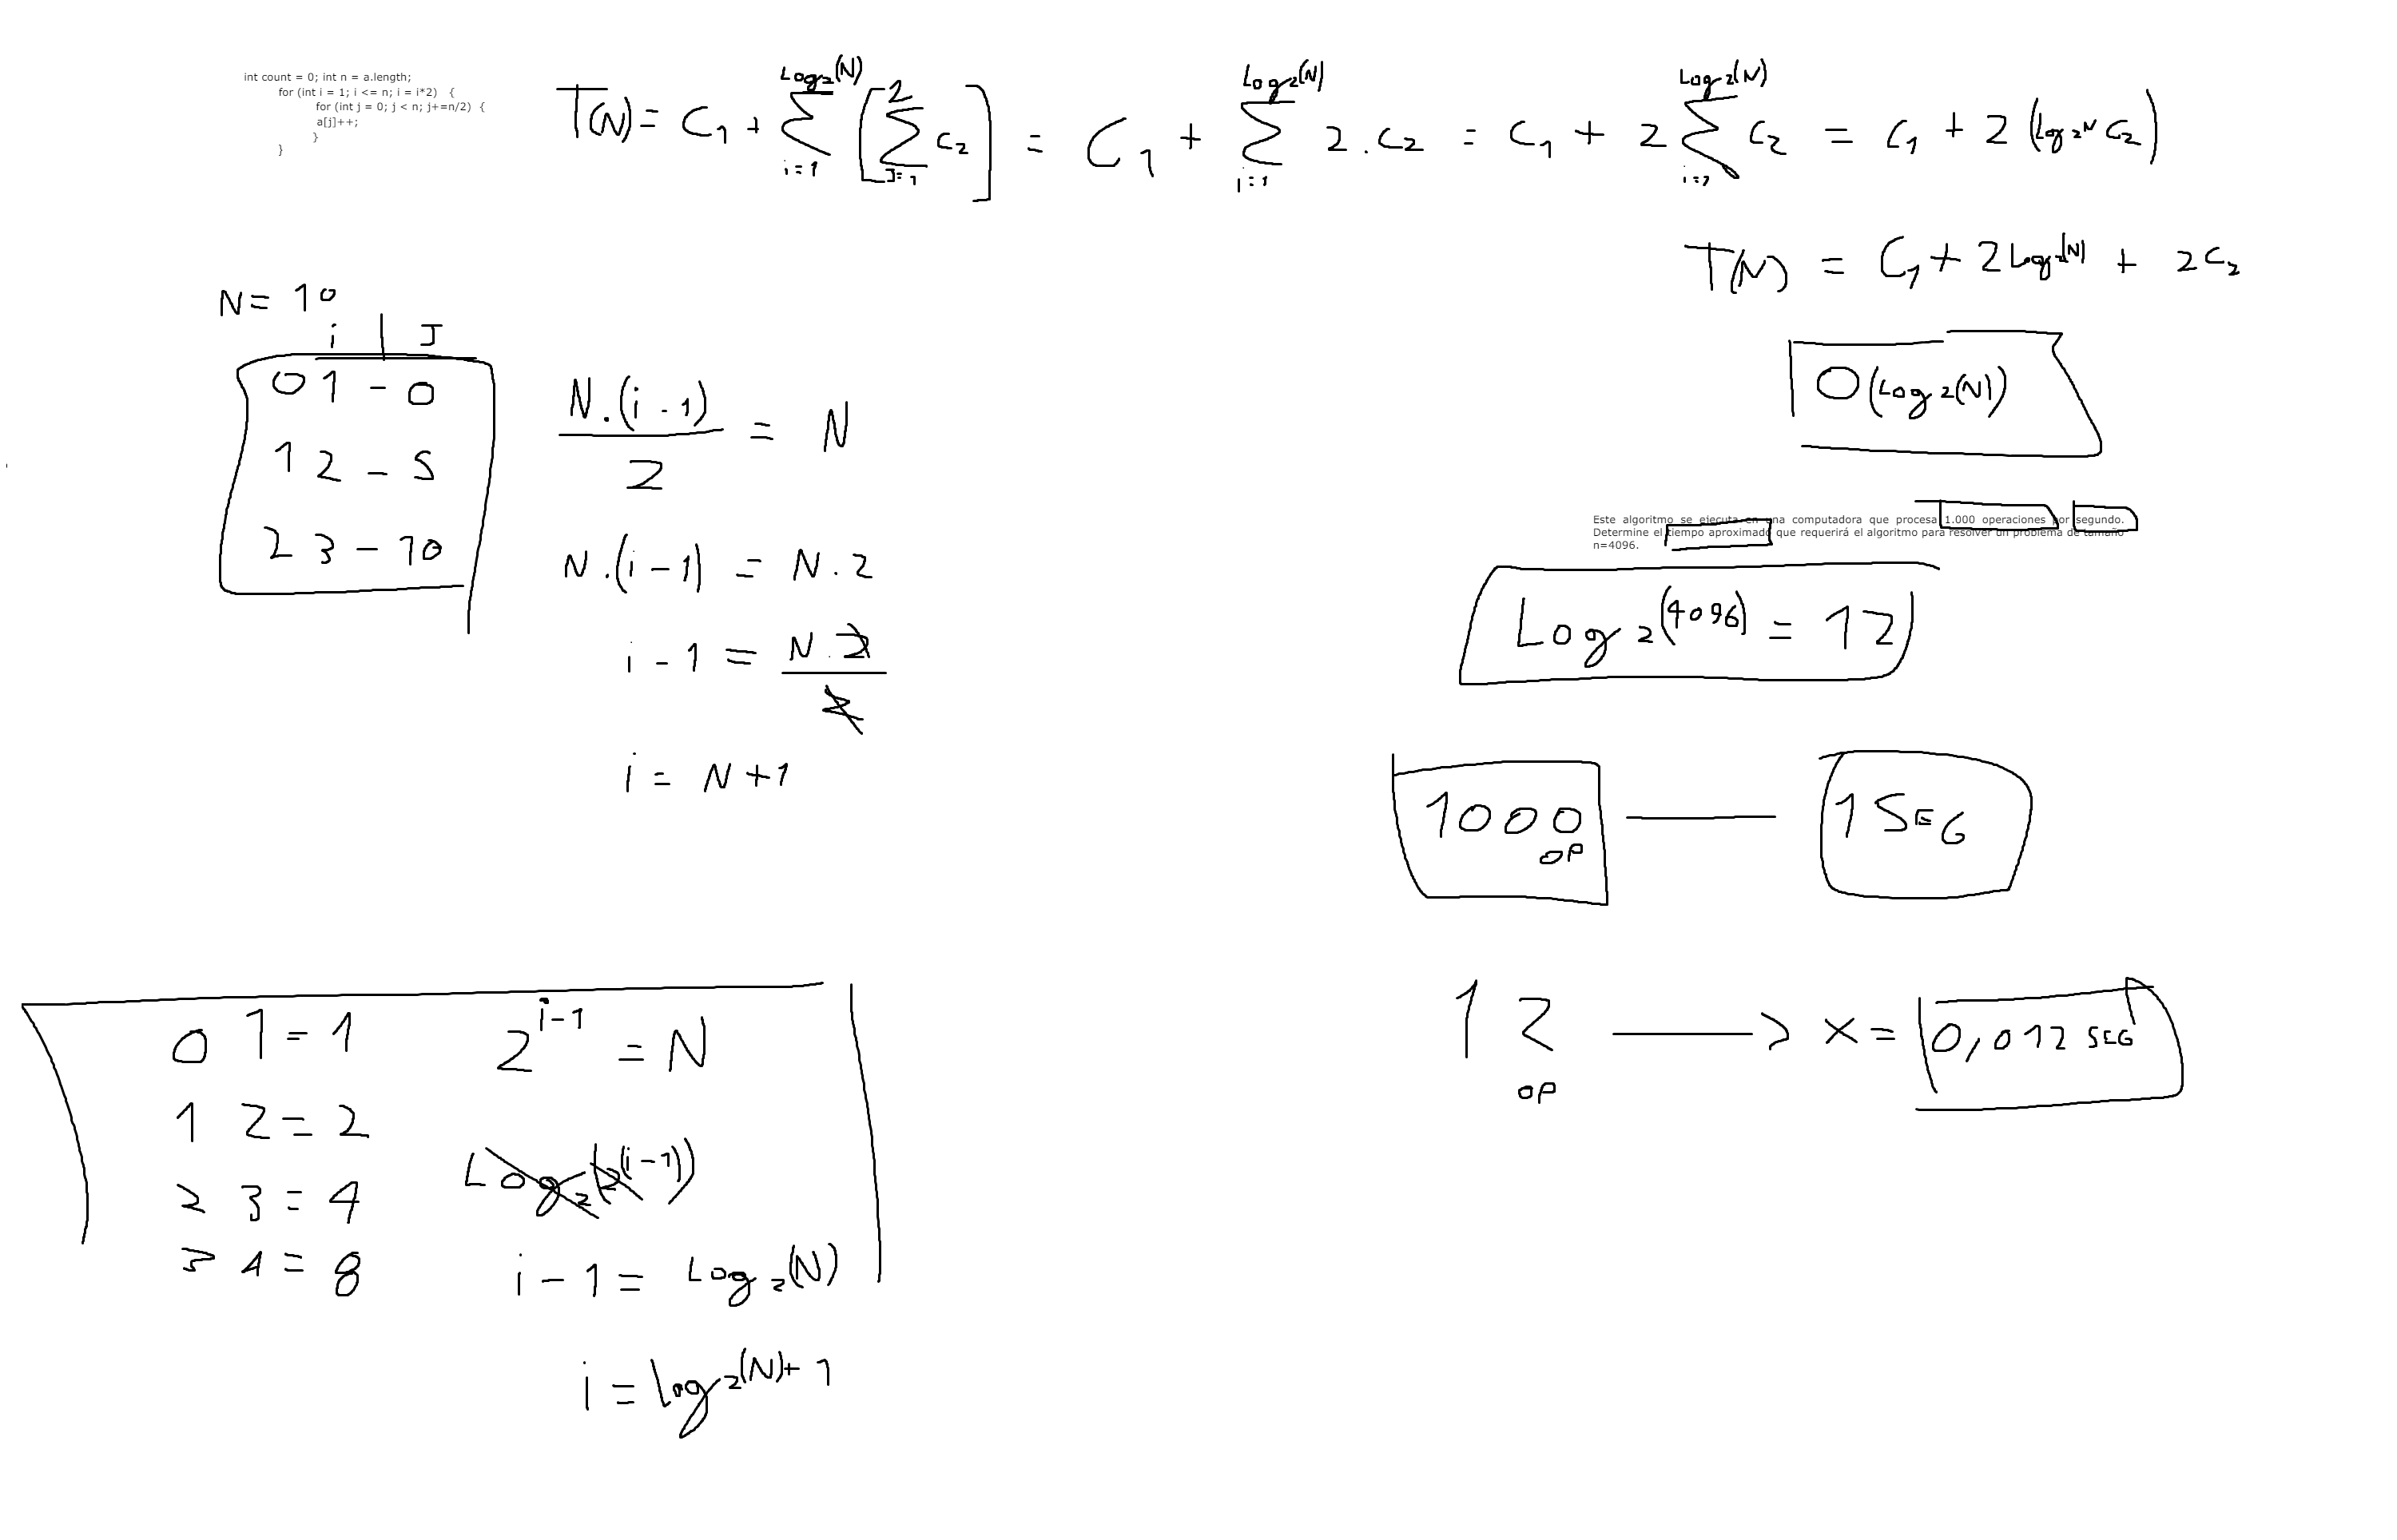 int count = 0; int n = a.length;
for (int i = 1; i <= n; i = i*2) {
for (int j = 0; j < n; j+=n/2) {
a[j]++;
}
}
T(N) = C1 + Log2(N) Σ i=1 [ 2 Σ J=1 C2 ] = C1 + Log2(N) Σ i=1 2.C2 = C1 + 2 Log2(N) Σ i=1 C2 = C1 + 2 (Log2N C2)
T(N) = C1 + 2Log2(N) + 2C2
O(Log2(N))
N = 10
i | J
0 1 - 0
1 2 - 5
2 3 - 10
N.(i-1) / 2 = N
N.(i-1) = N.2
i - 1 = N.2 / N
i = N+1
Este algoritmo se ejecuta en una computadora que procesa 1.000 operaciones por segundo.
Determine el tiempo aproximado que requerirá el algoritmo para resolver un problema de tamaño
n=4096.
Log2(4096) = 12
1000 OP — 1 SEG
12 OP —> X = 0,012 SEG
0 1 = 1
1 2 = 2
2 3 = 4
3 4 = 8
2^i-1 = N
Log2(2(i-1))
i - 1 = Log2(N)
i = Log2(N)+1